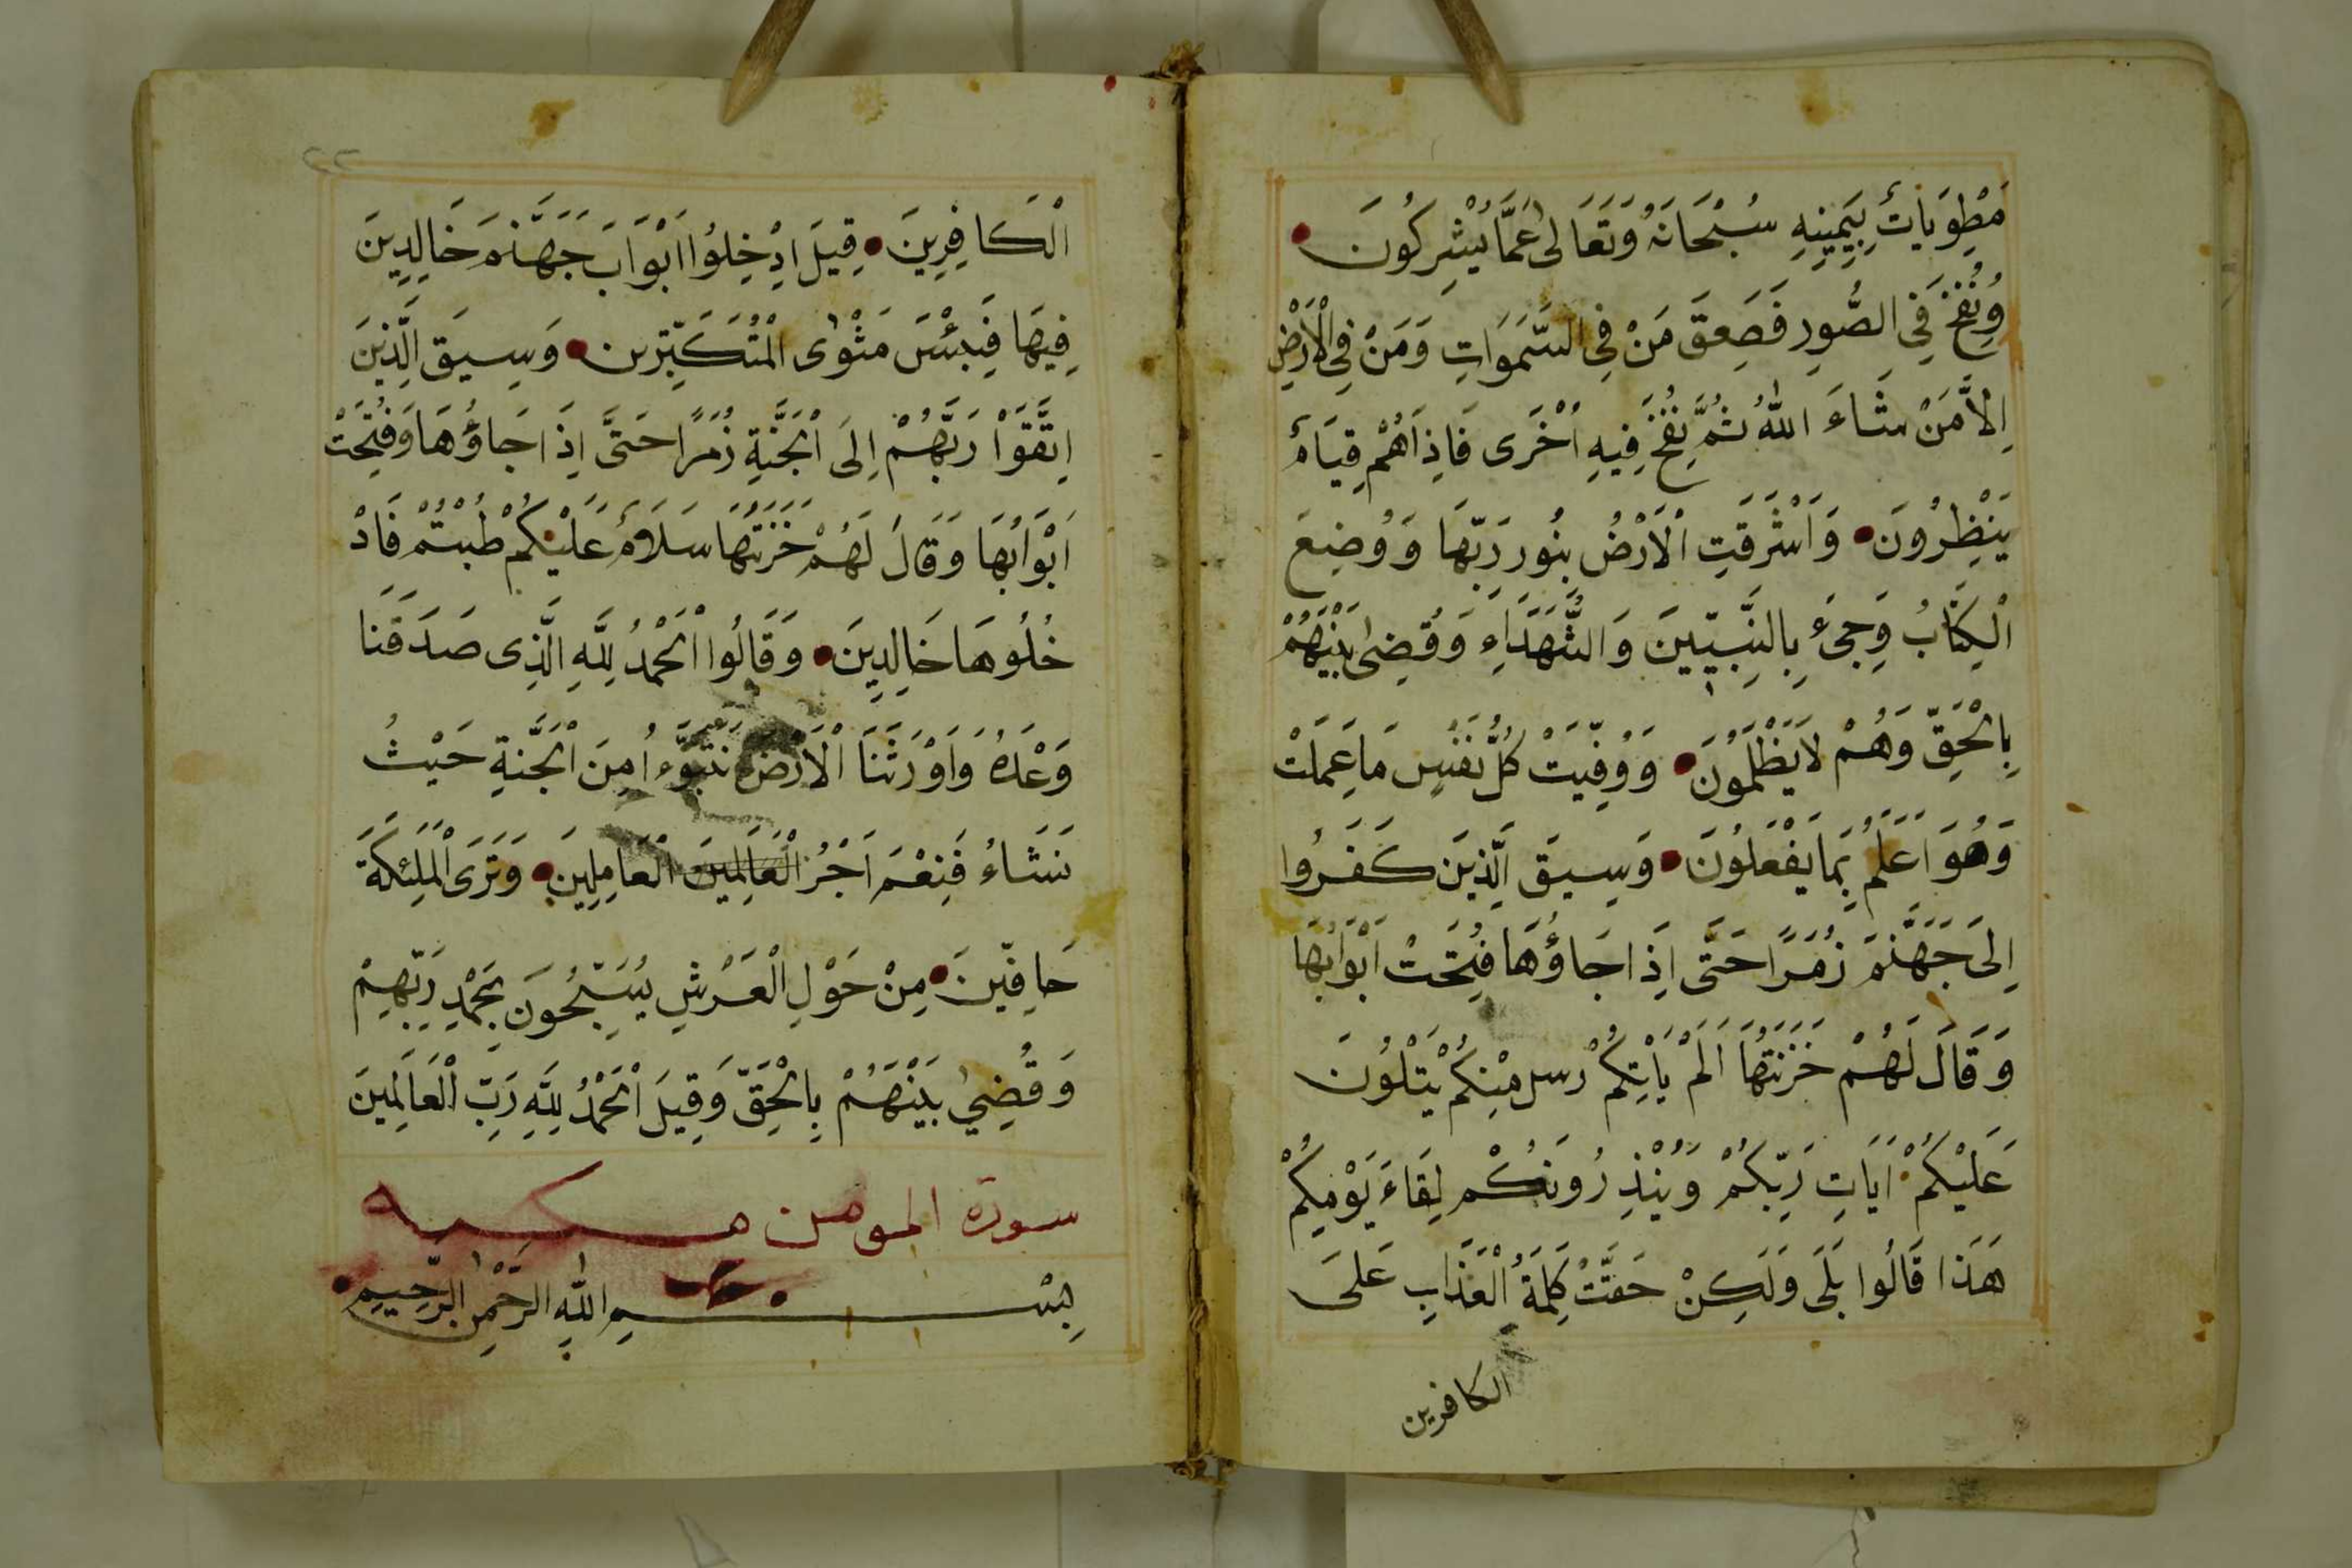 مَطْوِيَاتٌ بِيَمِينِهِ سُبْحَانَهُ وَتَعَالٰى عَمَّا يُشْرِكُونَ
وَنُفِخَ فِي الصُّورِ فَصَعِقَ مَنْ فِي السَّمَوَاتِ وَمَنْ فِي الْاَرْضِ
اِلاَّ مَنْ شَاءَ اللّٰهُ ثُمَّ نُفِخَ فِيهِ اُخْرَى فَاِذَا هُمْ قِيَامٌ
يَنْظُرُونَ وَاَشْرَقَتِ الْاَرْضُ بِنُورِ رَبِّهَا وَوُضِعَ
الْكِتَابُ وَجِىءَ بِالنَّبِيّينَ وَالشُّهَدَاءِ وَقُضِىَ بَيْنَهُمْ
بِالْحَقِّ وَهُمْ لاَ يُظْلَمُونَ وَوُفِّيَتْ كُلُّ نَفْسٍ مَا عَمِلَتْ
وَهُوَ اَعْلَمُ بِمَا يَفْعَلُونَ وَسِيقَ الَّذِينَ كَفَرُوا
اِلَى جَهَنَّمَ زُمَرًا حَتَّى اِذَا جَاؤُهَا فُتِحَتْ اَبْوَابُهَا
وَقَالَ لَهُمْ خَزَنَتُهَا اَلَمْ يَاْتِكُمْ رُسل مِنْكُمْ يَتْلُونَ
عَلَيْكُمْ اَيَاتِ رَبِّكُمْ وَيُنْذِرُونَكُمْ لِقَاءَ يَوْمِكُمْ
هَذَا قَالُوا بَلَى وَلَكِنْ حَقَّتْ كَلِمَةُ الْعَذَابِ عَلَى
الكافرين
٢٢
الْكَافِرِينَ قِيلَ ادْخِلُوا اَبْوَابَ جَهَنَّمَ خَالِدِينَ
فِيهَا فَبِئْسَ مَثْوٰى الْمُتَكَبِّرين وَسِيقَ الَّذِينَ
اتَّقَوْا رَبَّهُمْ اِلَى الْجَنَّةِ زُمَرًا حَتَّى اِذَا جَاؤُهَا وَفُتِحَتْ
اَبْوَابُهَا وَقَالَ لَهُمْ خَزَنَتُهَا سَلاَمٌ عَلَيْكُمْ طِبْتُمْ فَادْ
خُلُوهَا خَالِدِينَ وَقَالُوا الْحَمْدُ لِلَّهِ الَّذِى صَدَقَنَا
وَعْدَهُ وَاَوْرَثَنَا الْاَرْضَ نَتَبَوَّءُ مِنَ الْجَنَّةِ حَيْثُ
نَشَاءُ فَنِعْمَ اَجْرُ الْعَالَمِينَ الْعَامِلِينَ وَتَرَى الْمَلئِكَةَ
حَافِّينَ مِنْ حَوْلِ الْعَرْشِ يُسَبِّحُونَ بِحَمْدِ رَبِّهِمْ
وَقُضِيَ بَيْنَهُمْ بِالْحَقِّ وَقِيلَ الْحَمْدُ لِلَّهِ رَبِّ الْعَالَمِينَ
سورة المومن مكيه
بِسْمِ اللّٰهِ الرَّحْمٰنِ الرَّحِيمِ